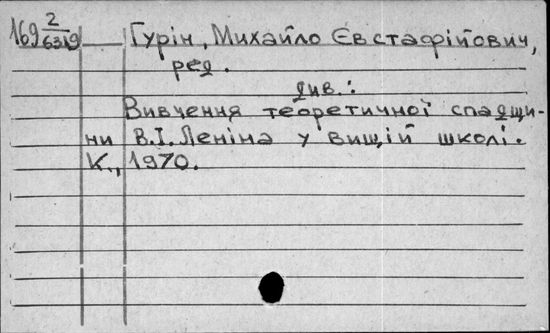 169 2/6319 Гурін, Михайло Євстафійович,
ред.
див.:
Вивчення теоретичної спадщи-
ни В.І. Леніна у вищій школі.
К., 1970.